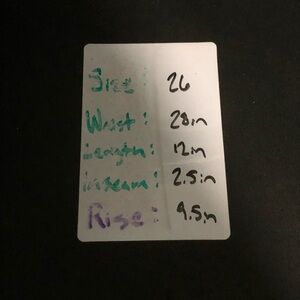 Size: 26
Waist: 28in
Length: 12in
Inseam: 2.5in
Rise: 9.5in